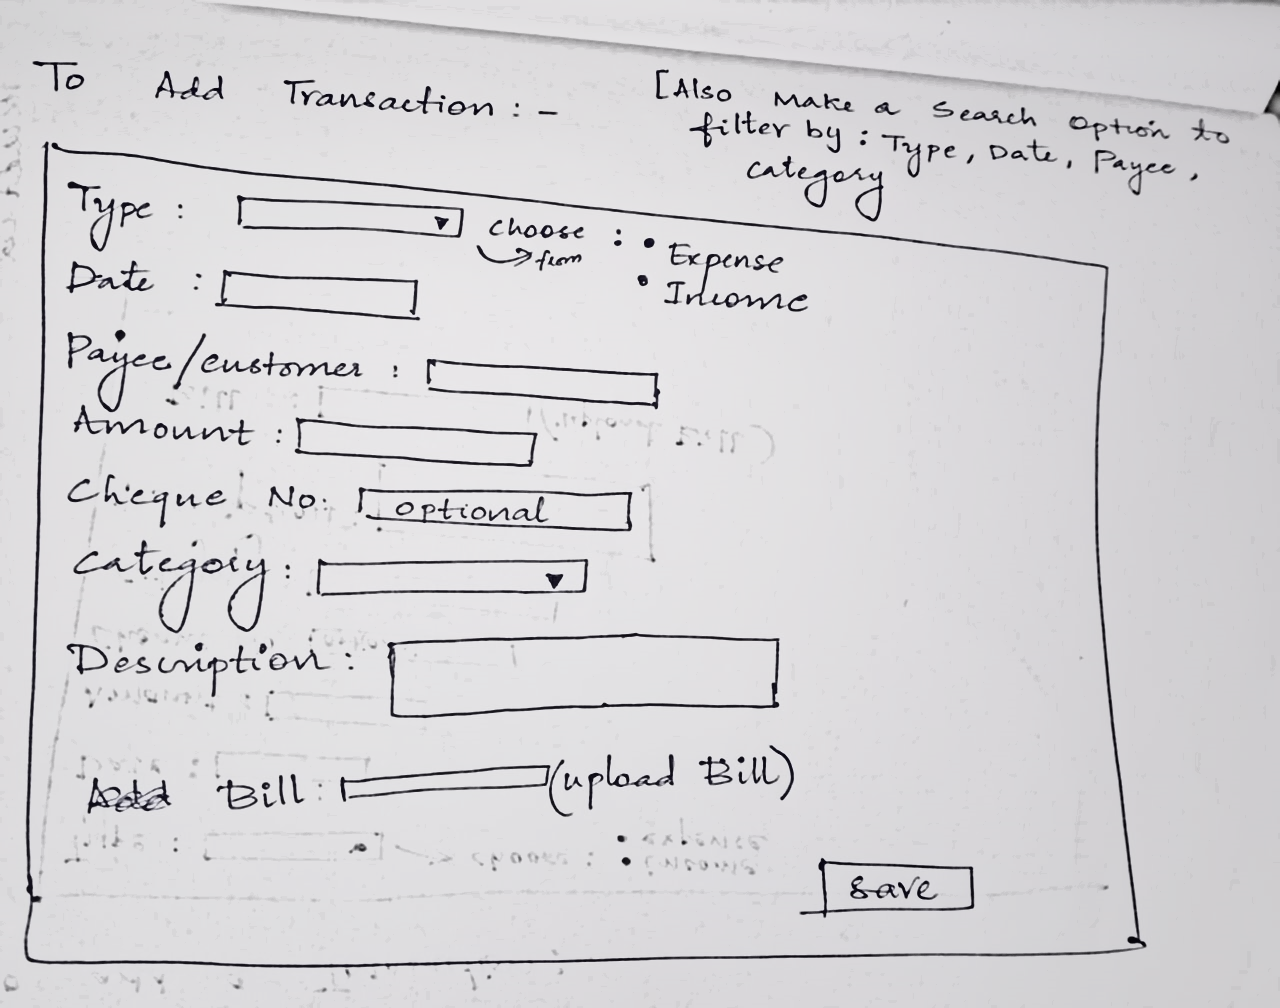 To Add Transaction : -
[Also Make a Search Option to
filter by : Type, Date, Payee,
category
Type :
choose :
from
• Expense
• Income
Date :
Payee/customer :
Amount :
Cheque No: optional
category :
Description :
Bill : (upload Bill)
save